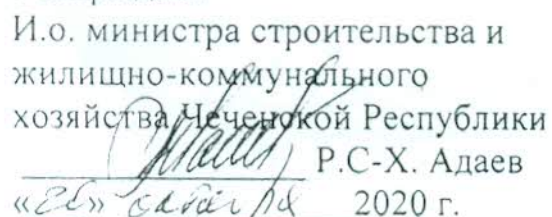 И.о. министра строительства и
жилищно-коммунального
хозяйства Чеченской Республики
Р.С-Х. Адаев
2020 г.